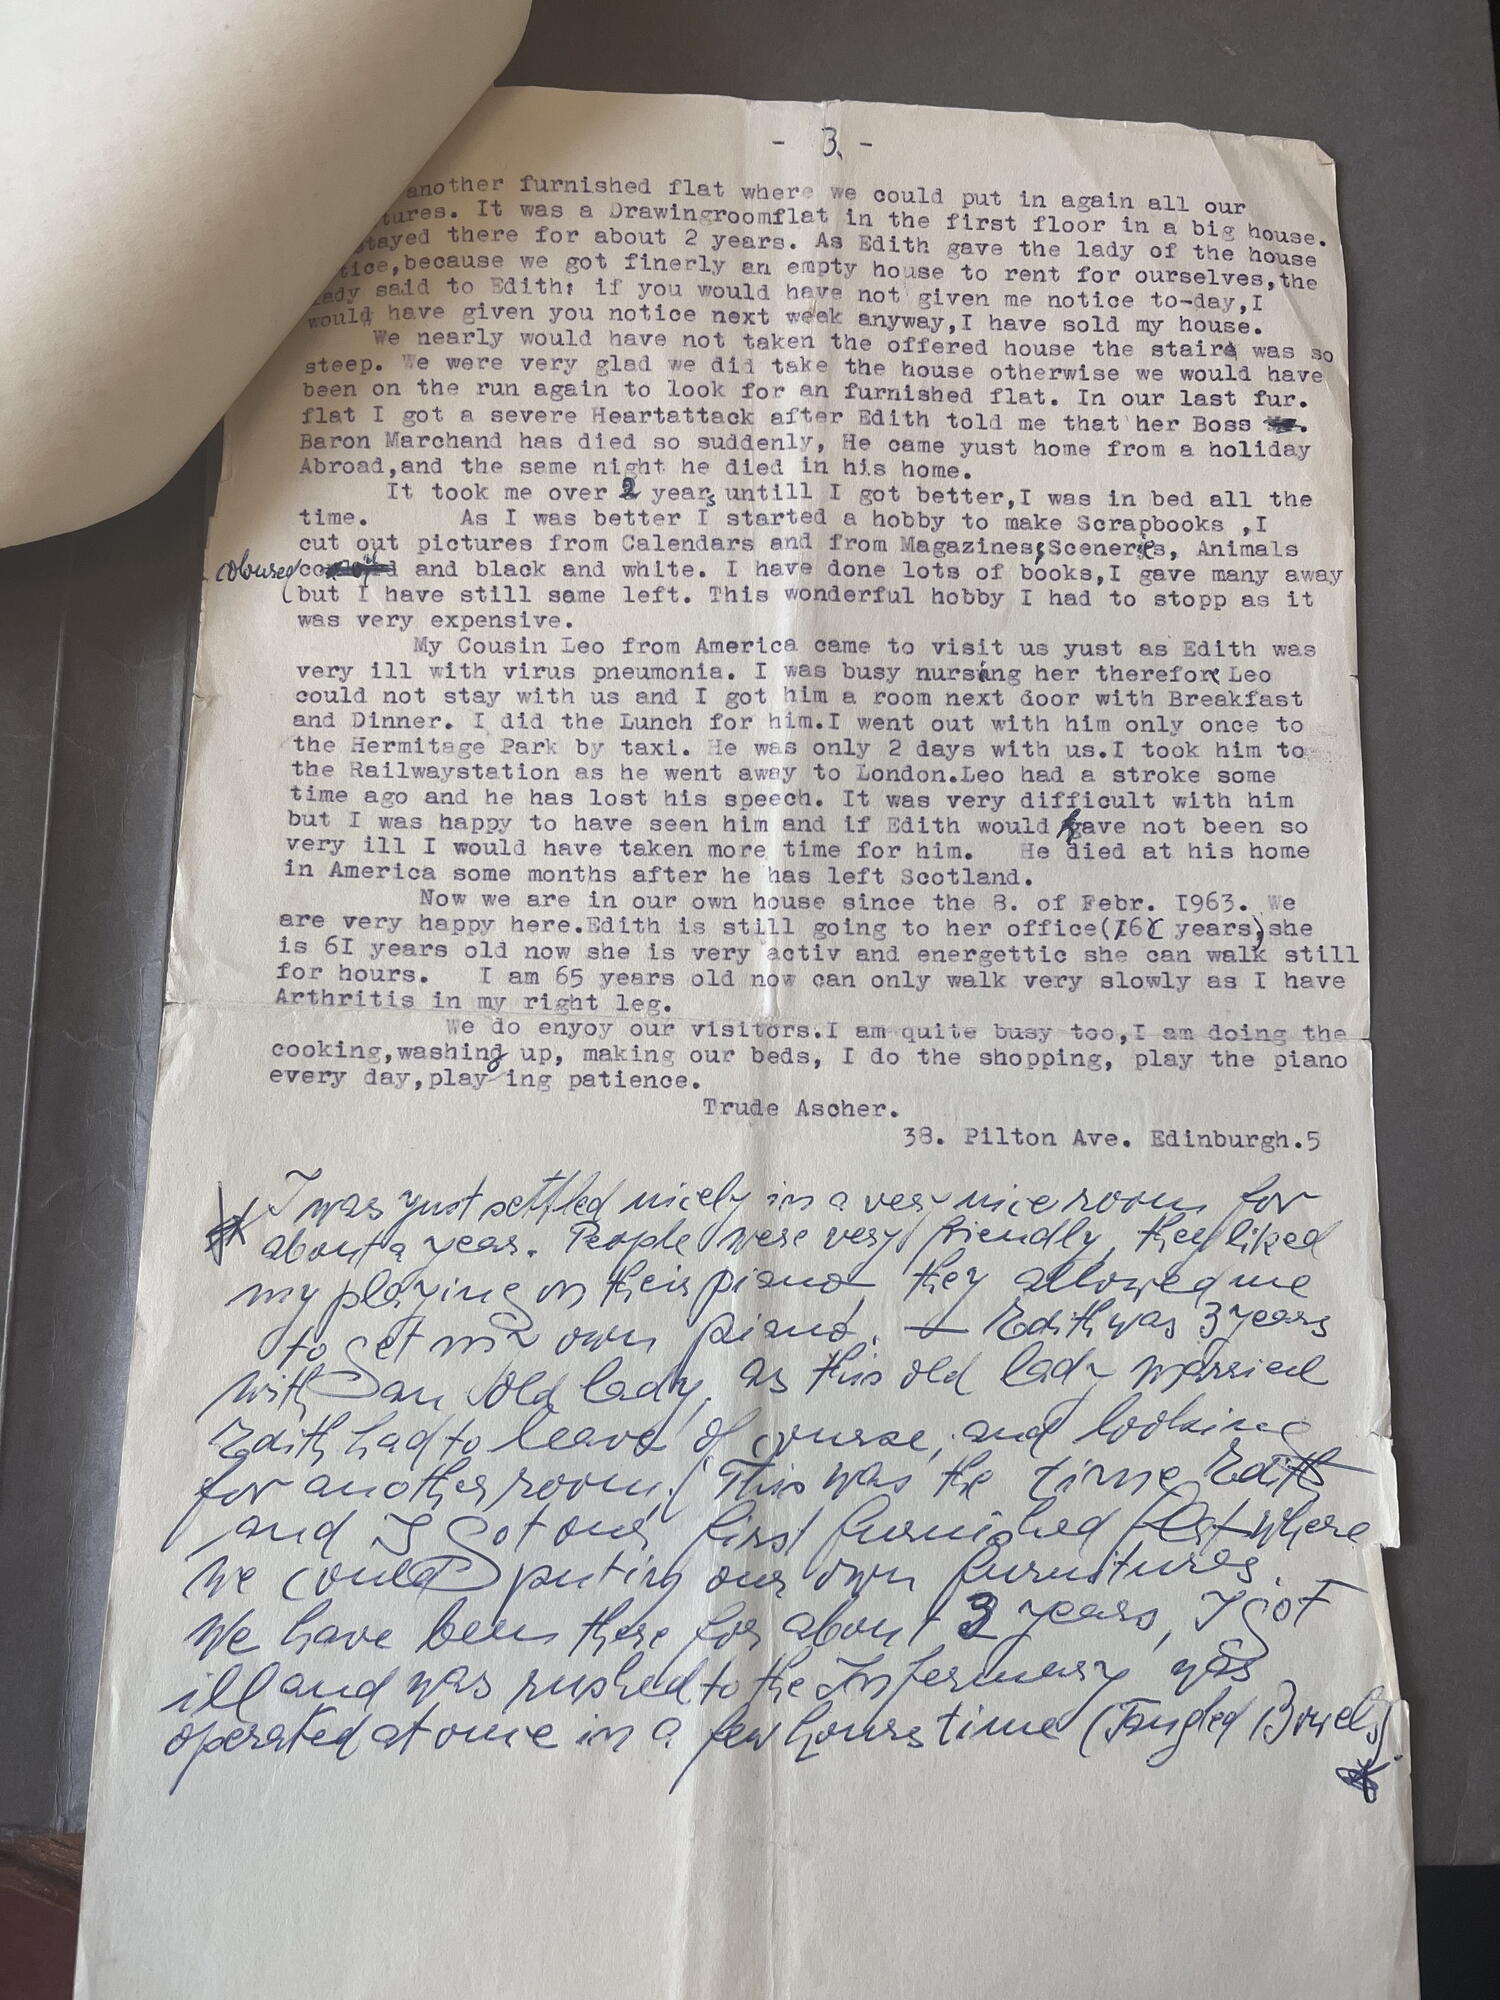 - 3. -
another furnished flat where we could put in again all our
tures. It was a Drawingroomflat in the first floor in a big house.
stayed there for about 2 years. As Edith gave the lady of the house
tice,because we got finerly an empty house to rent for ourselves,the
lady said to Edith: if you would have not given me notice to-day,I
would have given you notice next week anyway,I have sold my house.
We nearly would have not taken the offered house the stairs was so
steep. We were very glad we did take the house otherwise we would have
been on the run again to look for an furnished flat. In our last fur.
flat I got a severe Heartattack after Edith told me that her Boss
Baron Marchand has died so suddenly, He came yust home from a holiday
Abroad,and the same night he died in his home.
It took me over 2 years untill I got better,I was in bed all the
time. As I was better I started a hobby to make Scrapbooks ,I
cut out pictures from Calendars and from Magazines;Sceneries, Animals
coloured and black and white. I have done lots of books,I gave many away
(but I have still some left. This wonderful hobby I had to stopp as it
was very expensive.
My Cousin Leo from America came to visit us yust as Edith was
very ill with virus pneumonia. I was busy nursing her therefore Leo
could not stay with us and I got him a room next door with Breakfast
and Dinner. I did the Lunch for him.I went out with him only once to
the Hermitage Park by taxi. He was only 2 days with us.I took him to
the Railwaystation as he went away to London.Leo had a stroke some
time ago and he has lost his speech. It was very difficult with him
but I was happy to have seen him and if Edith would have not been so
very ill I would have taken more time for him. He died at his home
in America some months after he has left Scotland.
Now we are in our own house since the 8. of Febr. 1963. We
are very happy here.Edith is still going to her office(16 years)she
is 61 years old now she is very activ and energettic she can walk still
for hours. I am 65 years old now can only walk very slowly as I have
Arthritis in my right leg.
We do enyoy our visitors.I am quite busy too,I am doing the
cooking,washing up, making our beds, I do the shopping, play the piano
every day,playing patience.
Trude Ascher.
38. Pilton Ave. Edinburgh.5
* I was yust settled nicely in a very nice room for
about a year. People were very friendly, they liked
my playing on their piano, they allowed me
to get my own piano. — Edith was 3 years
with an old lady, as this old lady married
Edith had to leave of course, and looking
for another room. This was the time Edith
and I got our first furnished flat where
we could puting our own furnitures.
We have been there for about 3 years, I got
ill and was rushed to the Infermary was
operated at once in a few hours time (Tangled Bowels)
*